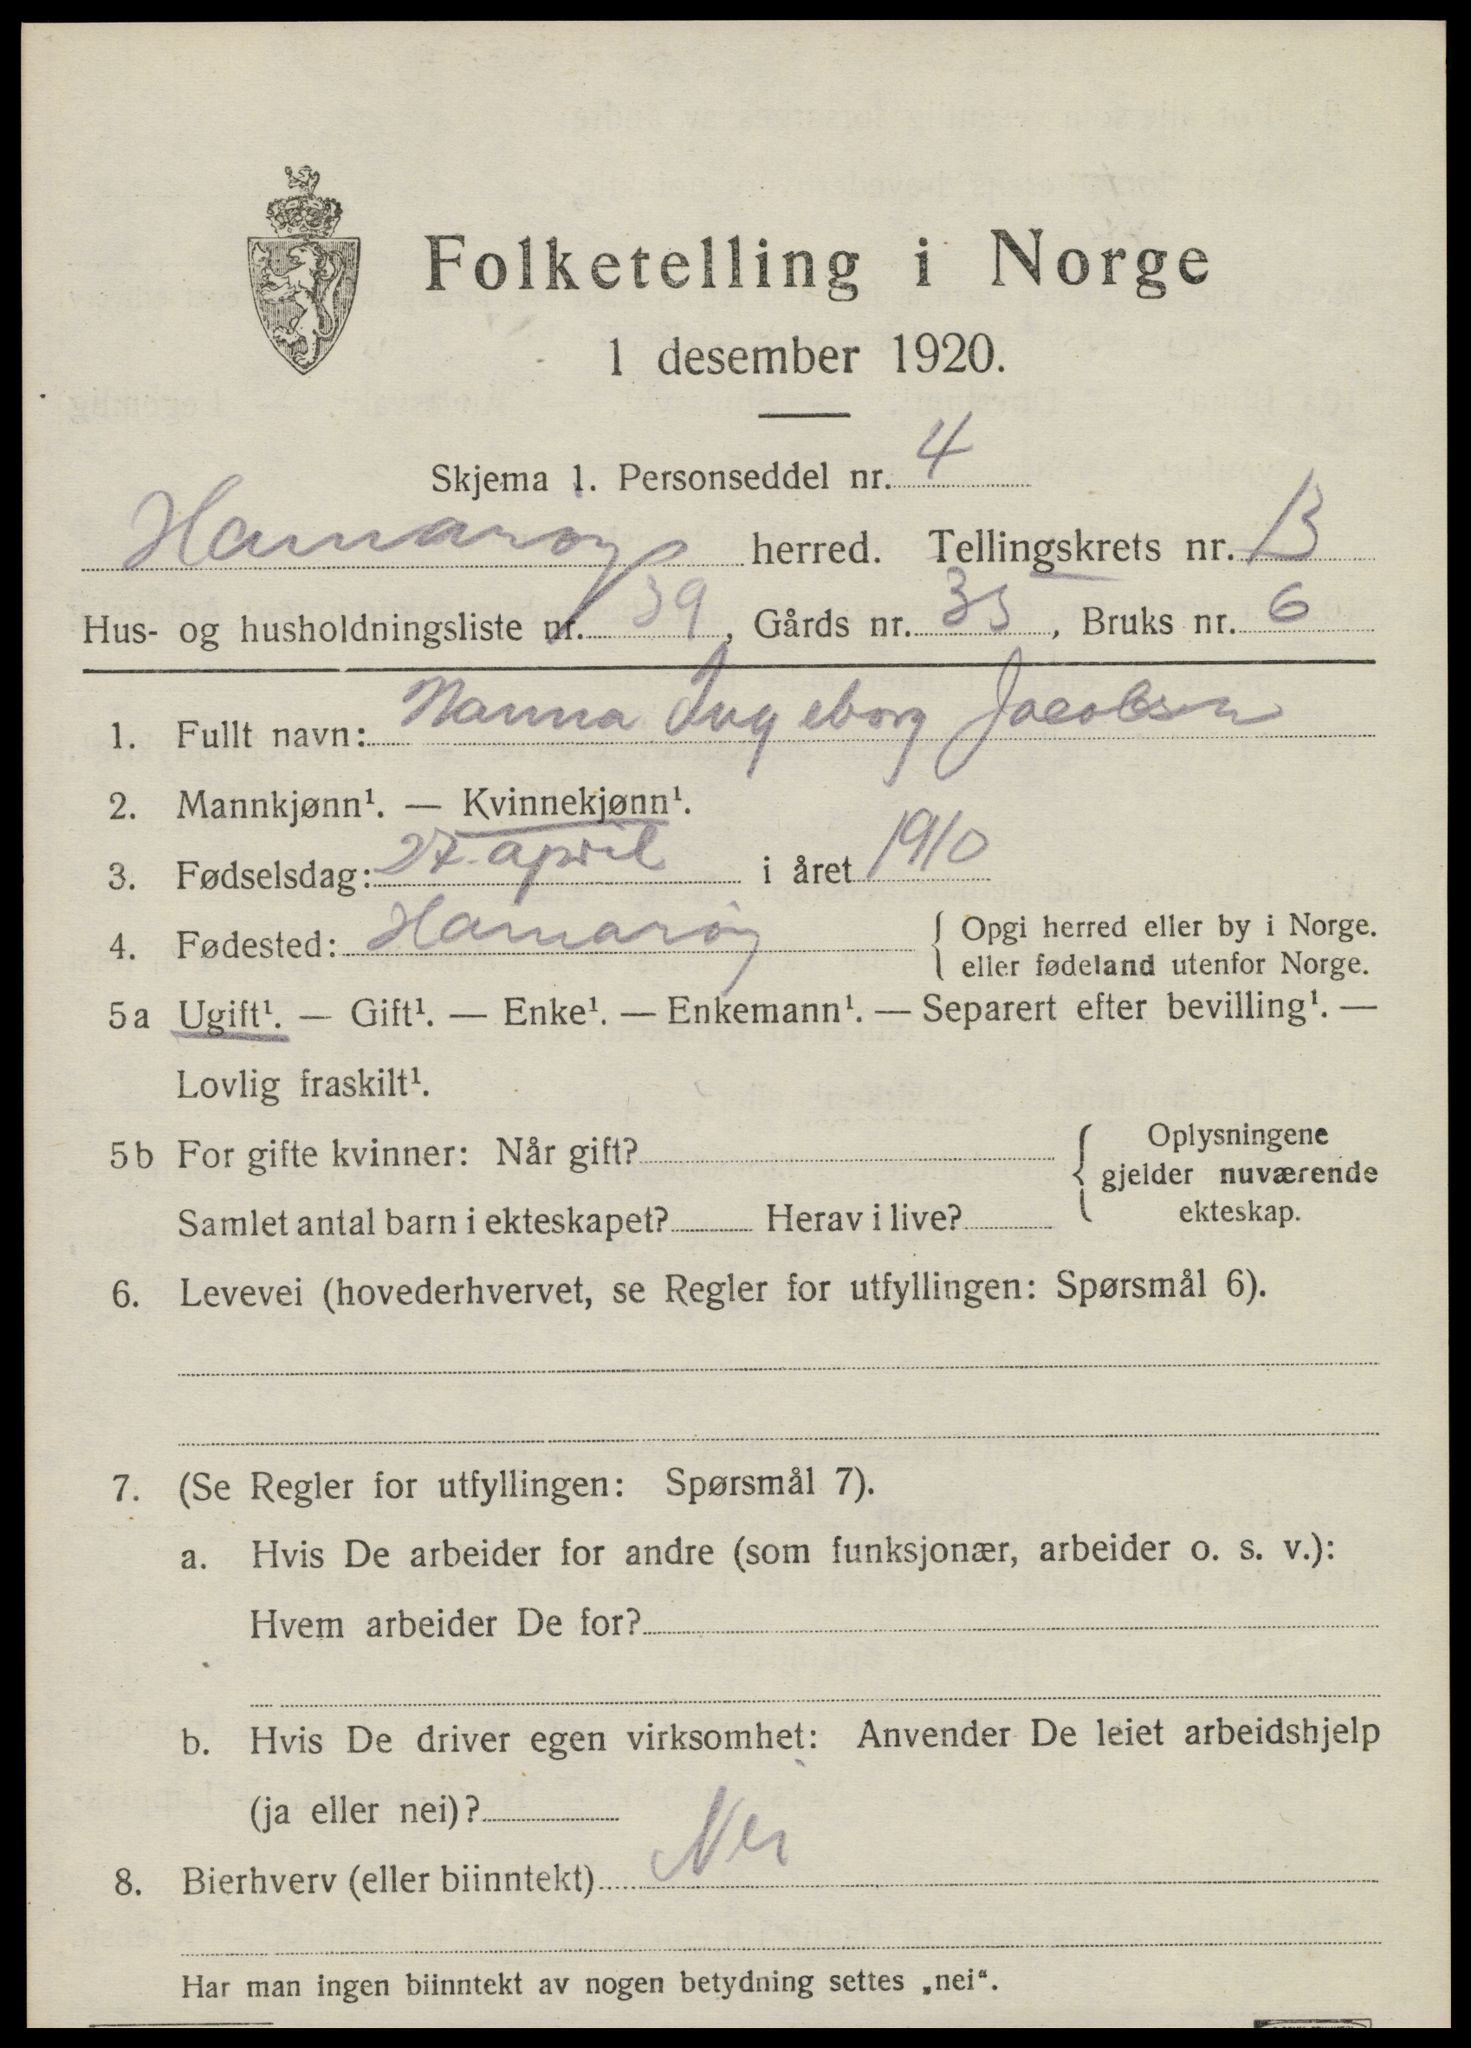 Folketelling i Norge
1 desember 1920.
Skjema 1. Personseddel nr. 4
Hamarøy herred. Tellingskrets nr. 13
Hus- og husholdningsliste nr. 39, Gårds nr. 35, Bruks nr. 6
1. Fullt navn: Nanna Ingeborg Jacobsen
2. Mannkjønn¹. — Kvinnekjønn¹.
3. Fødselsdag: 27 april i året 1910
4. Fødested: Hamarøy { Opgi herred eller by i Norge.
eller fødeland utenfor Norge.
5a Ugift¹. — Gift¹. — Enke¹. — Enkemann¹. — Separert efter bevilling¹. —
Lovlig fraskilt¹.
5b For gifte kvinner: Når gift? { Oplysningene
gjelder nuværende
Samlet antal barn i ekteskapet? Herav i live? ekteskap.
6. Levevei (hovederhvervet, se Regler for utfyllingen: Spørsmål 6).
7. (Se Regler for utfyllingen: Spørsmål 7).
a. Hvis De arbeider for andre (som funksjonær, arbeider o. s. v.):
Hvem arbeider De for?
b. Hvis De driver egen virksomhet: Anvender De leiet arbeidshjelp
(ja eller nei)?
8. Bierhverv (eller biinntekt) Nei
Har man ingen biinntekt av nogen betydning settes „nei“.